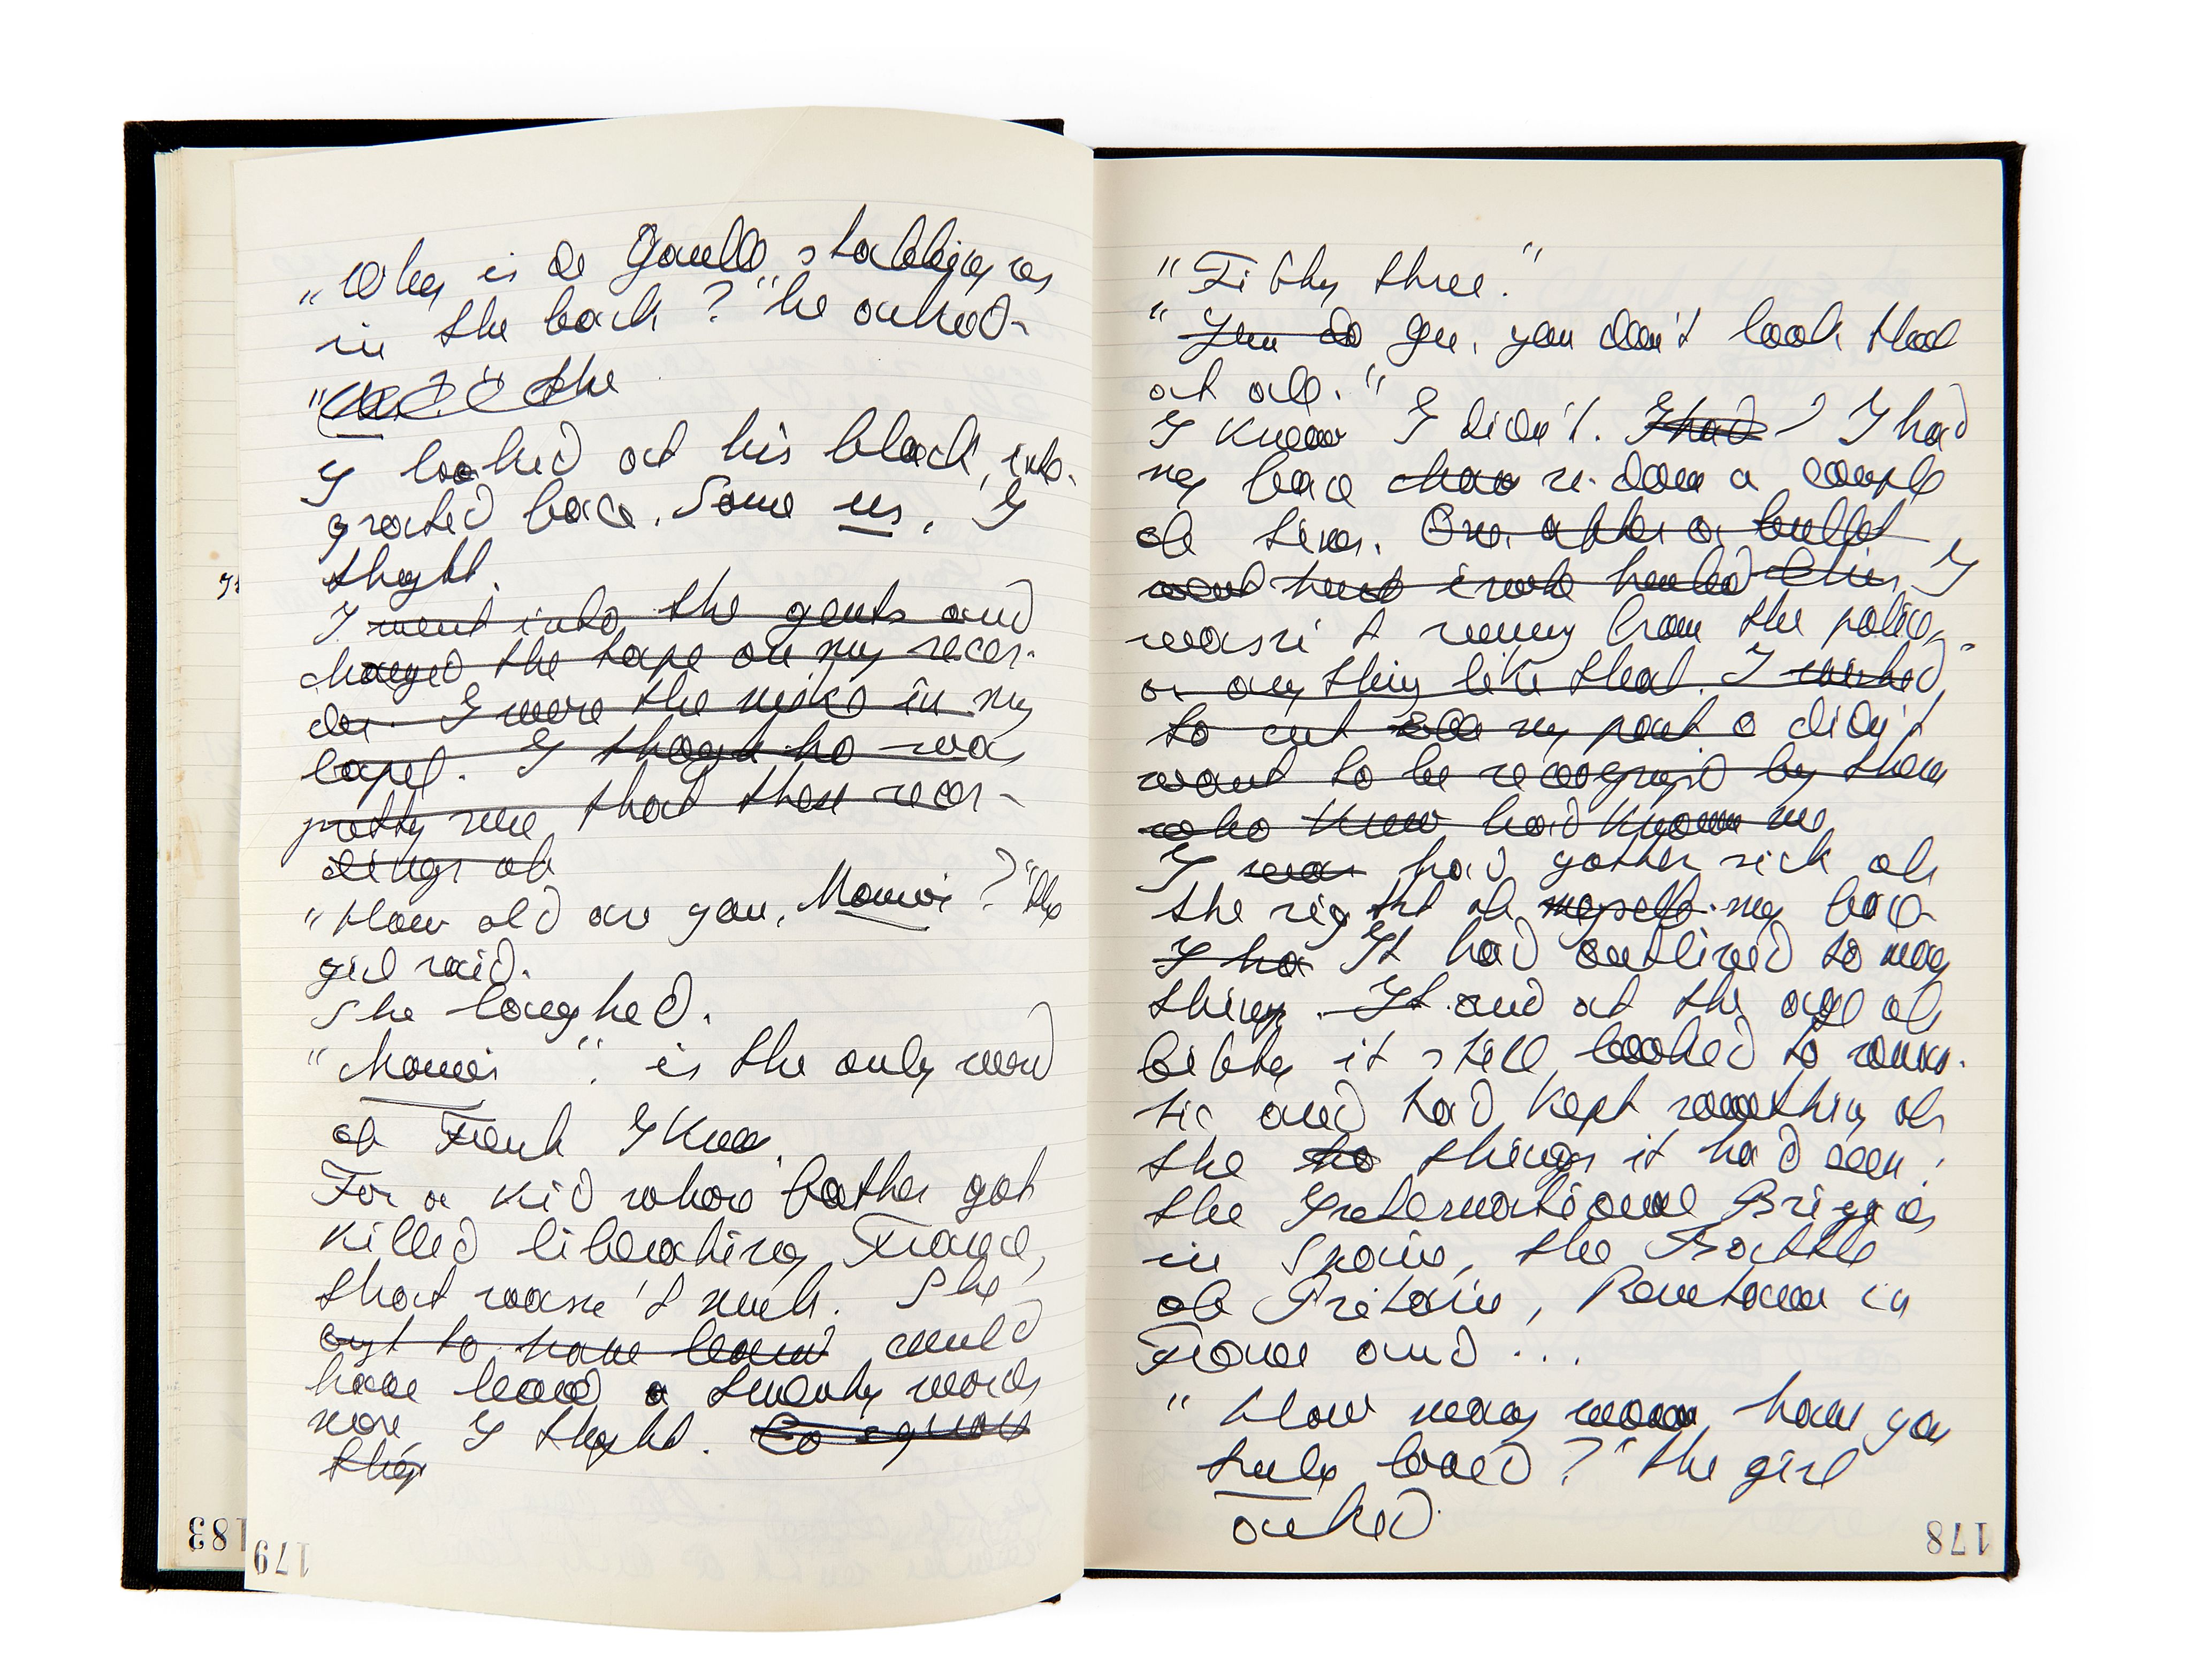 "Why is de Gaulle stabbing us
in the back?" he asked.
" the
I looked at his black, inte-
grated face. Some us, I
thught.
I went into the gents and
changed the tape on my recor-
der. I wore the mike in my
lapel. I though ho was
pretty sure that these recor-
dings of
"How old are you, Monsi?" the
girl said.
She laughed.
"Monsi" is the only word
of French I know.
For a kid whose father got
killed liberating France,
that wasn't much. She
ought to have learned could
have learned a twenty words
more, I thught. So
they
"Fifty three."
"You do Gee, you don't look that
at all."
I knew I didn't. I had I had
my face chan re-done a couple
of times. One, after a bullet
went I
wasn't runing from the police,
or any thing like that. I wished
to cut my past o didn't
want to be recognized by them
who knew had known me
I was had gotten sick of
the sight of myself my face
I ha It had outlived so many
things. It and at the age of
fifty it still looked so roman-
tic and had kept something of
the ho things it had seen:
the International Brigades
in Spain, the Battle
of Britain, Ramtown in
France and ...
"How many women have you
truly loved?" the girl
asked.
183
179
178